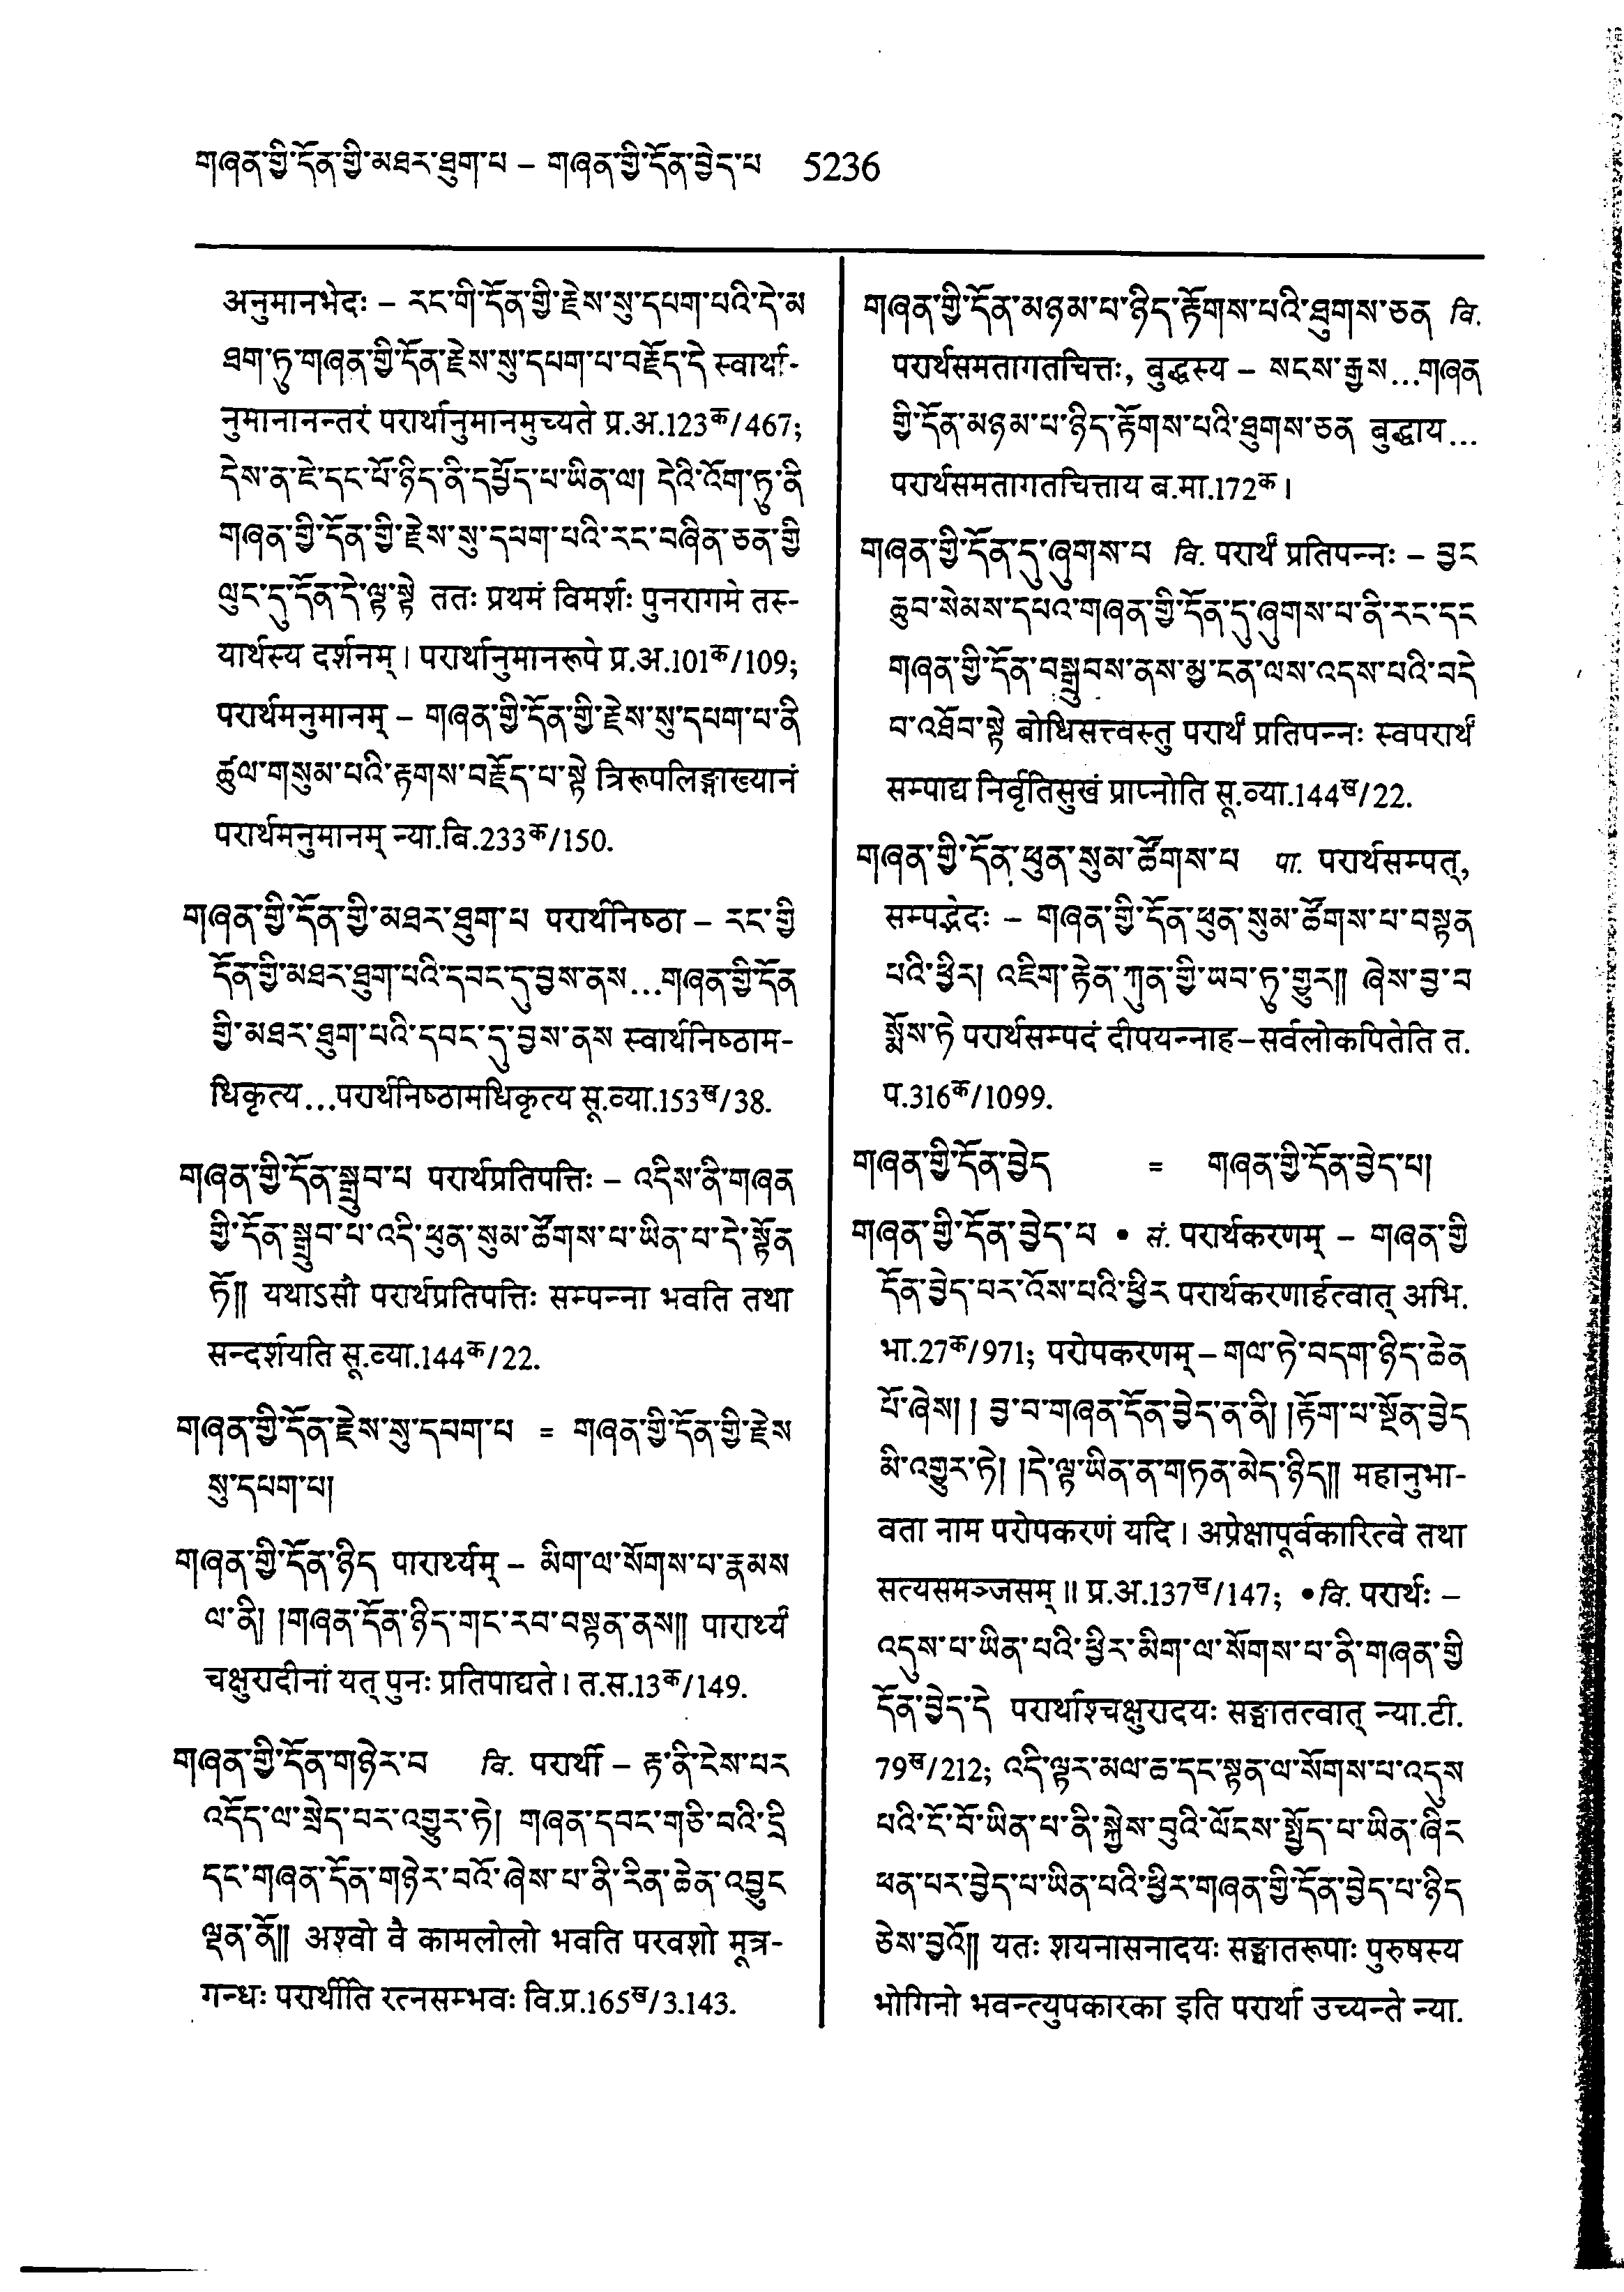 གཞན་གྱི་དོན་གྱི་མཐར་ཐུག་པ – གཞན་གྱི་དོན་བྱེད་པ 5236
अनुमानभेदः – རང་གི་དོན་གྱི་རྗེས་སུ་དཔག་པའི་དེ་མ
ཐག་ཏུ་གཞན་གྱི་དོན་རྗེས་སུ་དཔག་པ་བརྗོད་དེ स्वार्था-
नुमानानन्तरं परार्थानुमानमुच्यते प्र.अ.123क/467;
དེས་ན་ཇེ་དང་པོ་ཉིད་ནི་དཔྱོད་པ་ཡིན་ལ། དེའི་འོག་ཏུ་ནི
གཞན་གྱི་དོན་གྱི་རྗེས་སུ་དཔག་པའི་རང་བཞིན་ཅན་གྱི
ལུང་དུ་དོན་དེ་ལྟ་སྟེ ततः प्रथमं विमर्शः पुनरागमे तस्-
यार्थस्य दर्शनम्। परार्थानुमानरूपे प्र.अ.101क/109;
परार्थमनुमानम् – གཞན་གྱི་དོན་གྱི་རྗེས་སུ་དཔག་པ་ནི
ཚུལ་གསུམ་པའི་རྟགས་བརྗོད་པ་སྟེ त्रिरूपलिङ्गाख्यानं
परार्थमनुमानम् न्या.बि.233क/150.
གཞན་གྱི་དོན་གྱི་མཐར་ཐུག་པ परार्थनिष्ठा – རང་གྱི
དོན་གྱི་མཐར་ཐུག་པའི་དབང་དུ་བྱས་ནས...གཞན་གྱི་དོན
གྱི་མཐར་ཐུག་པའི་དབང་དུ་བྱས་ནས स्वार्थनिष्ठाम-
धिकृत्य...परार्थनिष्ठामधिकृत्य सू.व्या.153ख/38.
གཞན་གྱི་དོན་སྒྲུབ་པ परार्थप्रतिपत्तिः – འདིས་ནི་གཞན
གྱི་དོན་སྒྲུབ་པ་འདི་ཕུན་སུམ་ཚོགས་པ་ཡིན་པ་དེ་སྟོན
ཏོ།། यथाऽसौ परार्थप्रतिपत्तिः सम्पन्ना भवति तथा
सन्दर्शयति सू.व्या.144क/22.
གཞན་གྱི་དོན་རྗེས་སུ་དཔག་པ = གཞན་གྱི་དོན་གྱི་རྗེས
སུ་དཔག་པ།
གཞན་གྱི་དོན་ཉིད पारार्थ्यम् – མིག་ལ་སོགས་པ་རྣམས
ལ་ནི། །གཞན་དོན་ཉིད་གང་རབ་བསྟན་ནས།། पारार्थ्यं
चक्षुरादीनां यत् पुनः प्रतिपाद्यते। त.स.13क/149.
གཞན་གྱི་དོན་གཉེར་བ वि. परार्थी – རྟ་ནི་ངེས་པར
འདོད་ལ་སྲེད་པར་འགྱུར་ཏེ། གཞན་དབང་གཅི་བའི་དྲི
དང་གཞན་དོན་གཉེར་བའོ་ཞེས་པ་ནི་རིན་ཆེན་འབྱུང
ལྡན་ནོ།། अश्वो वै कामलोलो भवति परवशो मूत्र-
गन्धः परार्थीति रत्नसम्भवः वि.प्र.165ख/3.143.
གཞན་གྱི་དོན་མཉམ་པ་ཉིད་རྟོགས་པའི་ཐུགས་ཅན वि.
परार्थसमतागतचित्तः, बुद्धस्य – སངས་རྒྱས...གཞན
གྱི་དོན་མཉམ་པ་ཉིད་རྟོགས་པའི་ཐུགས་ཅན बुद्धाय...
परार्थसमतागतचित्ताय ब.मा.172क।
གཞན་གྱི་དོན་དུ་ཞུགས་པ वि. परार्थं प्रतिपन्नः – བྱང
ཆུབ་སེམས་དཔའ་གཞན་གྱི་དོན་དུ་ཞུགས་པ་ནི་རང་དང
གཞན་གྱི་དོན་བསྒྲུབས་ནས་མྱ་ངན་ལས་འདས་པའི་བདེ
བ་འཐོབ་སྟེ बोधिसत्त्वस्तु परार्थं प्रतिपन्नः स्वपरार्थं
सम्पाद्य निर्वृतिसुखं प्राप्नोति सू.व्या.144ख/22.
གཞན་གྱི་དོན་ཕུན་སུམ་ཚོགས་པ पा. परार्थसम्पत्,
सम्पद्भेदः – གཞན་གྱི་དོན་ཕུན་སུམ་ཚོགས་པ་བསྟན
པའི་ཕྱིར། འཇིག་རྟེན་ཀུན་གྱི་ཡབ་ཏུ་གྱུར།། ཞེས་བྱ་བ
སྨོས་ཏེ परार्थसम्पदं दीपयन्नाह–सर्वलोकपितेति त.
प.316क/1099.
གཞན་གྱི་དོན་བྱེད = གཞན་གྱི་དོན་བྱེད་པ།
གཞན་གྱི་དོན་བྱེད་པ • सं. परार्थकरणम् – གཞན་གྱི
དོན་བྱེད་པར་འོས་པའི་ཕྱིར परार्थकरणार्हत्वात् अभि.
भा.27क/971; परोपकरणम् – གལ་ཏེ་བདག་ཉིད་ཆེན
པོ་ཞེས། ། བྱ་བ་གཞན་དོན་བྱེད་ན་ནི། །རྟོག་པ་སྔོན་བྱེད
མི་འགྱུར་ཏེ། །དེ་ལྟ་ཡིན་ན་གཏན་མེད་ཉིད།། महानुभा-
वता नाम परोपकरणं यदि। अप्रेक्षापूर्वकारित्वे तथा
सत्यसमञ्जसम्॥ प्र.अ.137ख/147; •वि. परार्थः –
འདུས་པ་ཡིན་པའི་ཕྱིར་མིག་ལ་སོགས་པ་ནི་གཞན་གྱི
དོན་བྱེད་དེ परार्थाश्चक्षुरादयः सङ्घातत्वात् न्या.टी.
79ख/212; འདི་ལྟར་མལ་ཆ་དང་སྟན་ལ་སོགས་པ་འདུས
པའི་ངོ་བོ་ཡིན་པ་ནི་སྐྱེས་བུའི་ལོངས་སྤྱོད་པ་ཡིན་ཞིང
ཕན་པར་བྱེད་པ་ཡིན་པའི་ཕྱིར་གཞན་གྱི་དོན་བྱེད་པ་ཉིད
ཅེས་བྱའོ།། यतः शयनासनादयः सङ्घातरूपाः पुरुषस्य
भोगिनो भवन्त्युपकारका इति परार्था उच्यन्ते न्या.